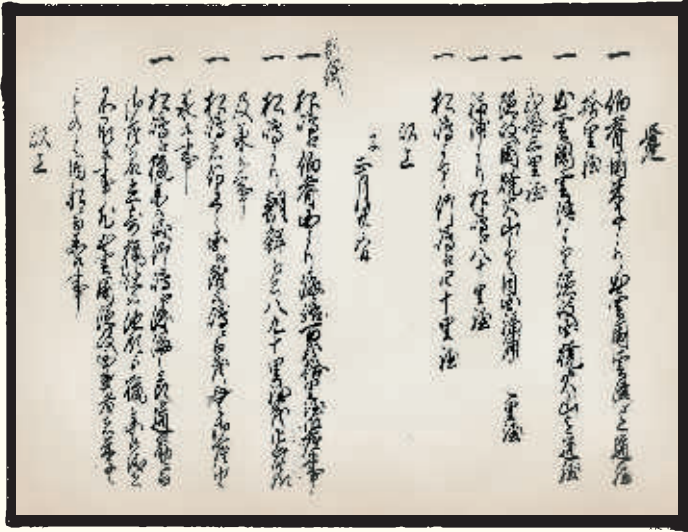 覚
一 伯耆国米子より出雲国雲津迄道程
拾里程
一 出雲国雲津より隠岐国焼火山迄道程
弐拾三里程
一 隠岐国焼火山より同国福浦迄 七里程
一 福浦より松嶋江八十里程
一 松嶋より竹嶋江四十里程
以上
子 正月廿五日
別紙
一 松嶋江伯耆国より海路百弐拾里程御座候事
一 松嶋より朝鮮江は八九十里程も御座候様
及承候事
一 松嶋は何れの国江附候嶋ニ而も無御座候由
承候事
一 松嶋江猟参候儀竹嶋江渡海之節道筋ニ而
御座候故立寄猟仕候他領より猟参候儀は
不承候事尤出雲国隠岐国之者は米子之
もの与同船ニ而参候事
以上